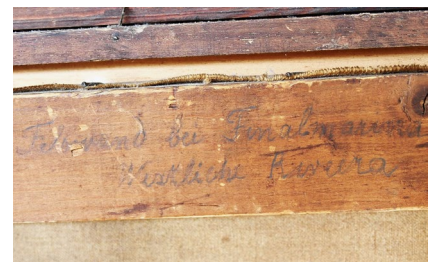 Felswand bei Finalmarina
Westliche Riviera